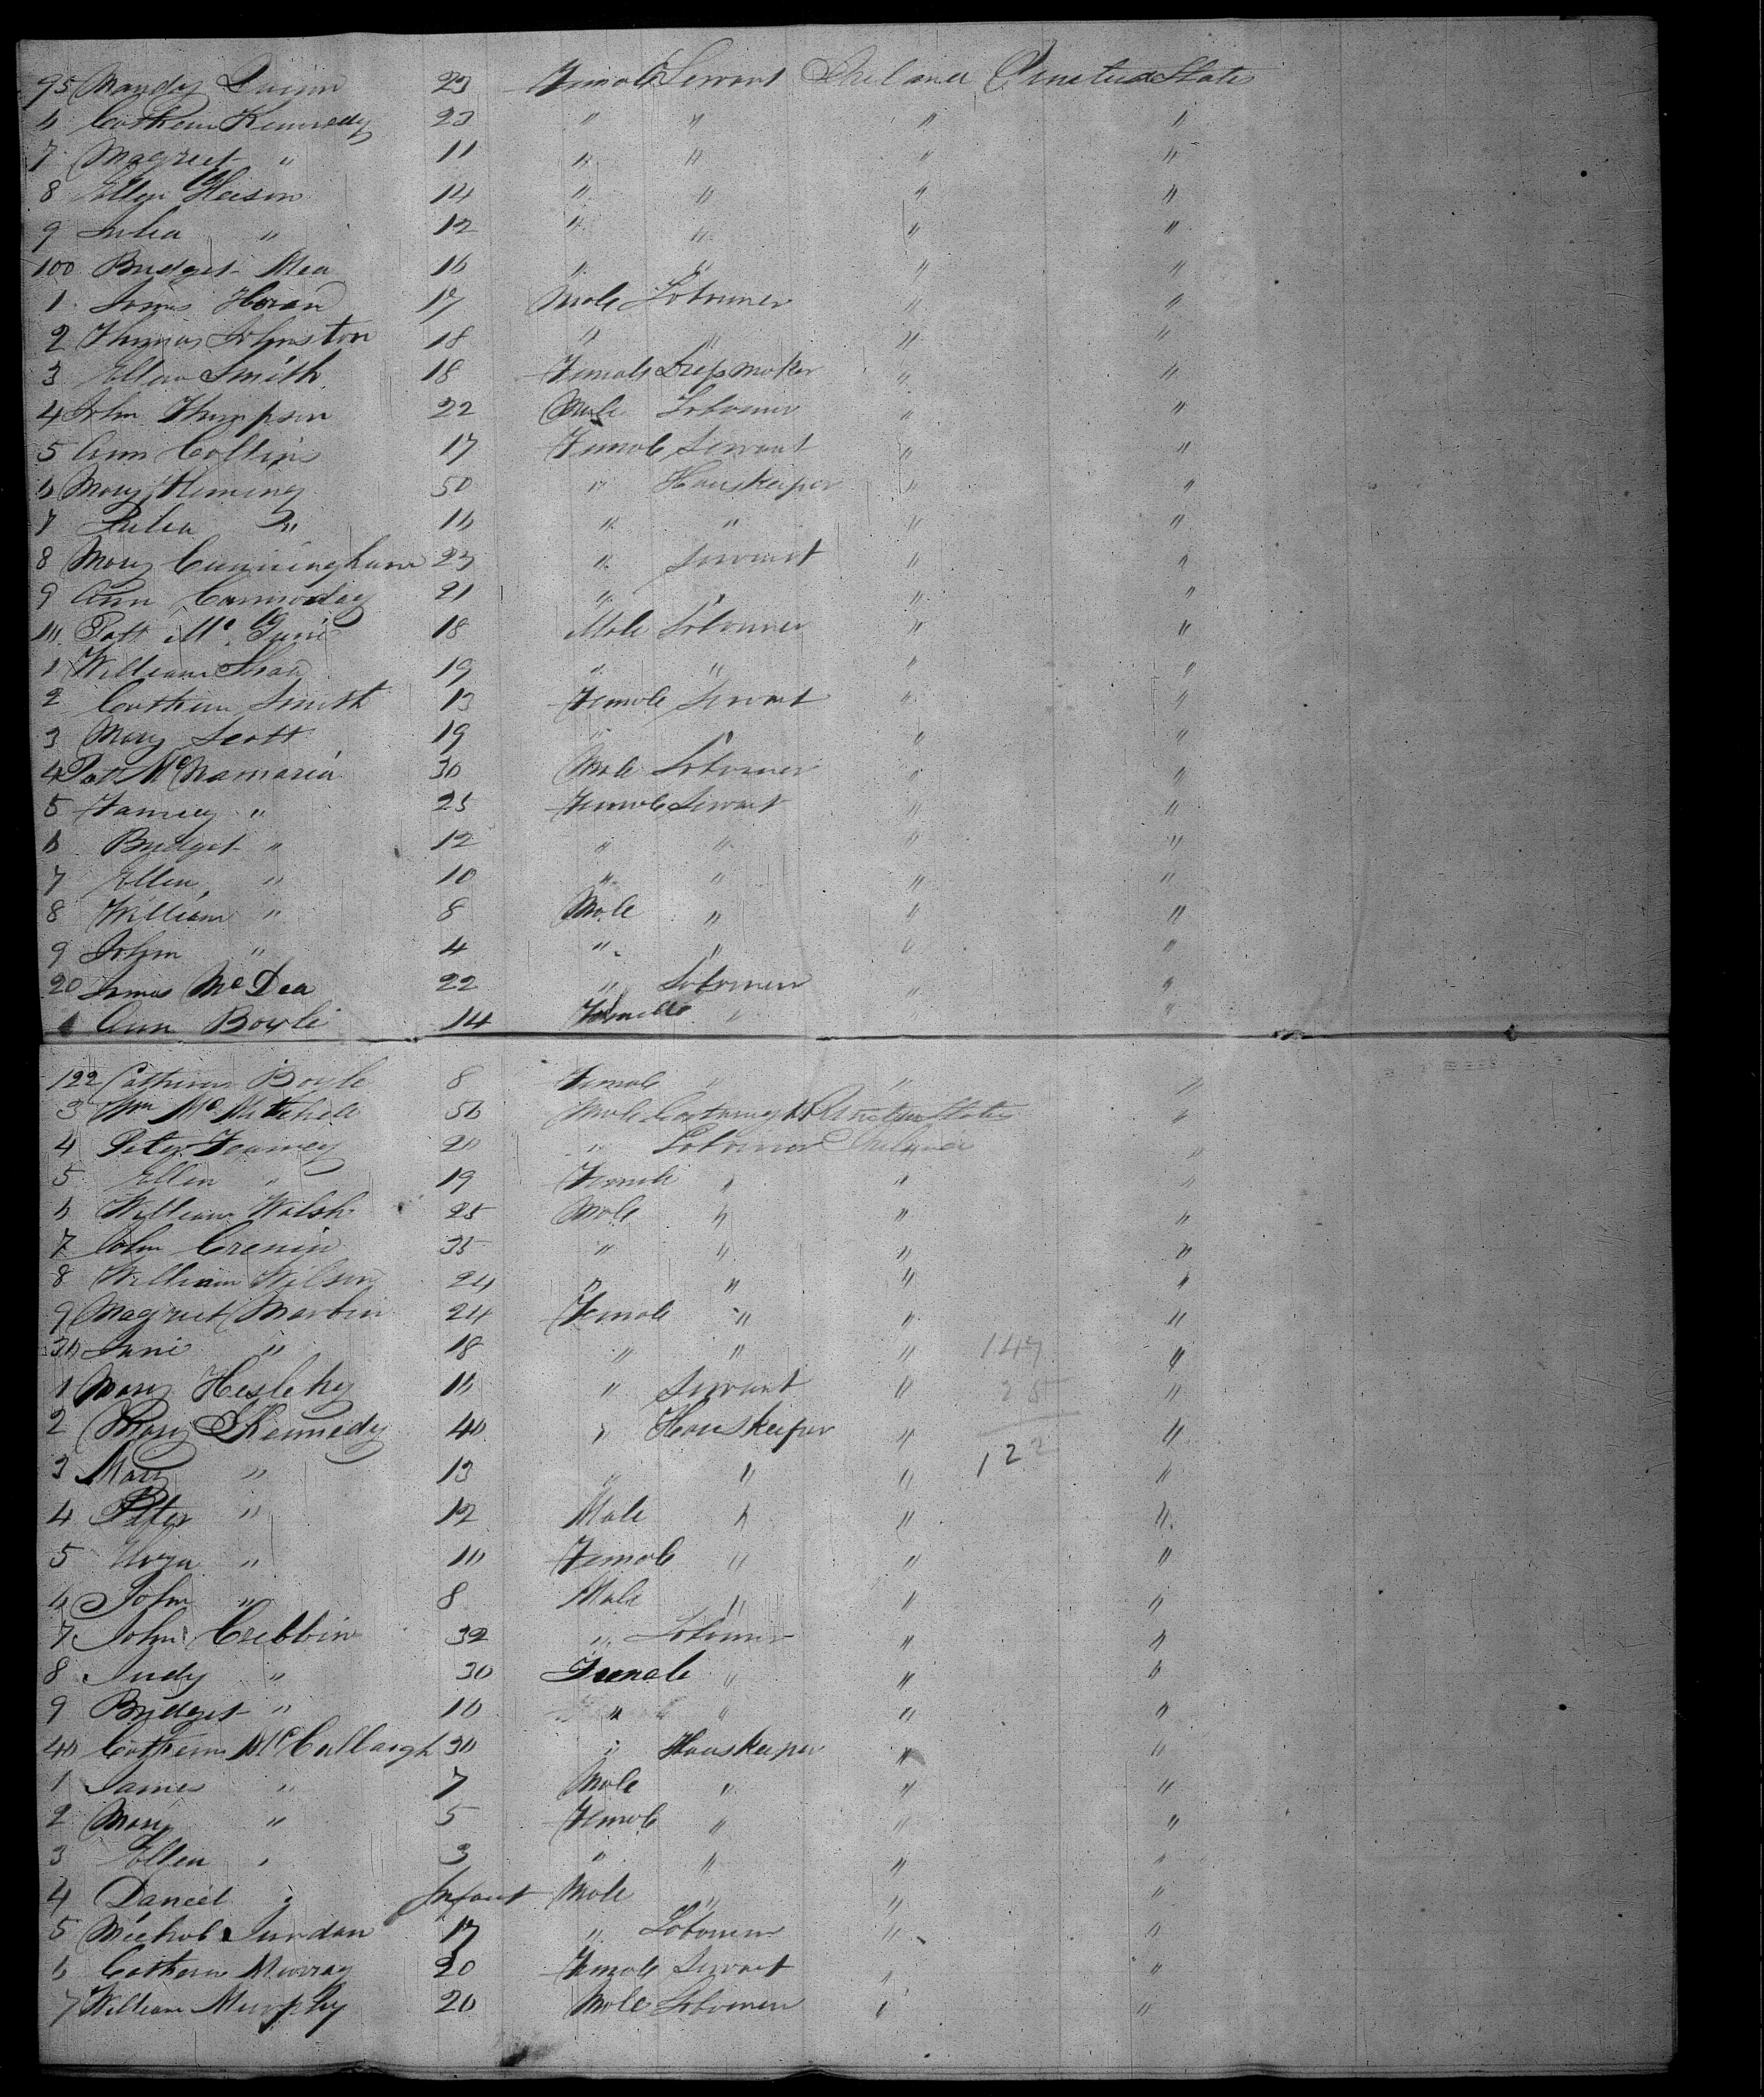 95 Quinn 23 Female Servant Ireland United States
6 Cathern Kennedy 23 " " " "
7 Magreet " 11 " " " "
8 Ellen 14 " " " "
9 Julia " 12 " " " "
100 Bridget Mea 16 " " " "
1 James Horan 17 Male Labourer " "
2 Thomas Johnston 18 " " " "
3 Ellen Smith 18 Female Dressmaker " "
4 John Thompson 22 Male Labourer " "
5 Ann Collins 17 Female Servant " "
6 Mary Fleming 50 " Houskeeper " "
7 Julia " 16 " " " "
8 Mary Cunningham 23 " Servant " "
9 Ann 21 " " " "
10 Patt Mc 18 Male Labourer " "
1 William 19 " " " "
2 Cathern Smith 13 Female Servant " "
3 Mary Scott 19 " " " "
4 Patt McNamaria 30 Male Labourer " "
5 " 25 Female Servant " "
6 Bridget " 12 " " " "
7 Ellen " 10 " " " "
8 William " 8 Male " " "
9 John " 4 " " " "
20 James McDea 22 " Labourer " "
1 Ann Boyle 14 Female " "
122 Cathern Boyle 8 Female " " "
3 Wm McMitchell 50 Male United States "
4 Peter 20 " Labourer Ireland "
5 Ellen " 19 Female " " "
6 William Walsh 25 Male " " "
7 John Cronin 35 " " " "
8 William Wilson 24 " " " "
9 Magreet Martin 24 Female " " "
30 Jane " 18 " " " 147 "
1 Mary 16 " Servant " 25 "
2 Mary Kennedy 40 " Houskeeper " "
3 Mary " 13 " " " 122 "
4 Peter " 12 Male " " "
5 " 10 Female " " "
6 John " 8 Male " " "
7 John Crebbin 32 " Labourer " "
8 Judy " 30 Female " " "
9 Bridget " 10 " " " "
40 Cathern McCullaugh 30 " Houskeeper " "
1 James " 7 Male " " "
2 Mary " 5 Female " " "
3 Ellen " 3 " " " "
4 Daniel " Infant Male " " "
5 Michal Jurdan 17 " Labourer " "
6 Cathern Murray 20 Female Servant " "
7 William Murphy 20 Male Labourer " "